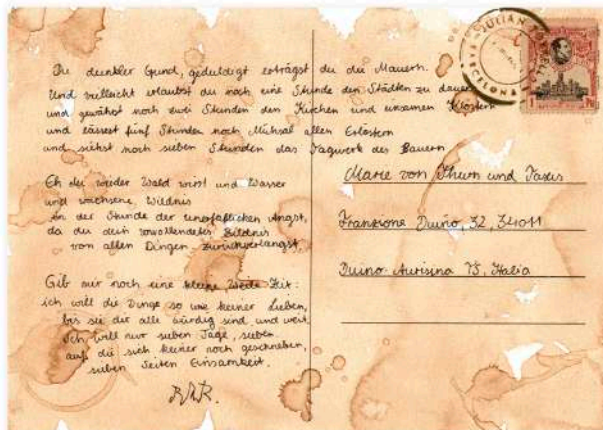 Du dunkler Grund, geduldigt erträgst du die Mauern.
Und vielleicht erlaubst du noch eine Stunde den Städten zu dauern
und gewährst noch zwei Stunden den Kirchen und einsamen Klöstern
und lässest fünf Stunden noch Mühsal allen Erlöstern
und siehst noch sieben Stunden das Tagwerk des Bauern
Eh du wieder Wald wirst und Wasser
und wachsene Wildnis
in der Stunde der unerfaßlichen Angst,
da du dein unvollendetes Bildnis
von allen Dingen zurückverlangst
Gib mir noch eine kleine Weile Zeit:
ich will die Dinge so wie keiner lieben,
bis sie dir alle würdig sind und weit
Ich will nur sieben Tage, sieben
auf die sich keiner noch geschrieben,
sieben Seiten Einsamkeit.
RMR.
JULIAN
BARCELONA
1
Marie von Thurn und Taxis
Franzione Duino, 32, 34011
Duino-Aurisina TS, Italia